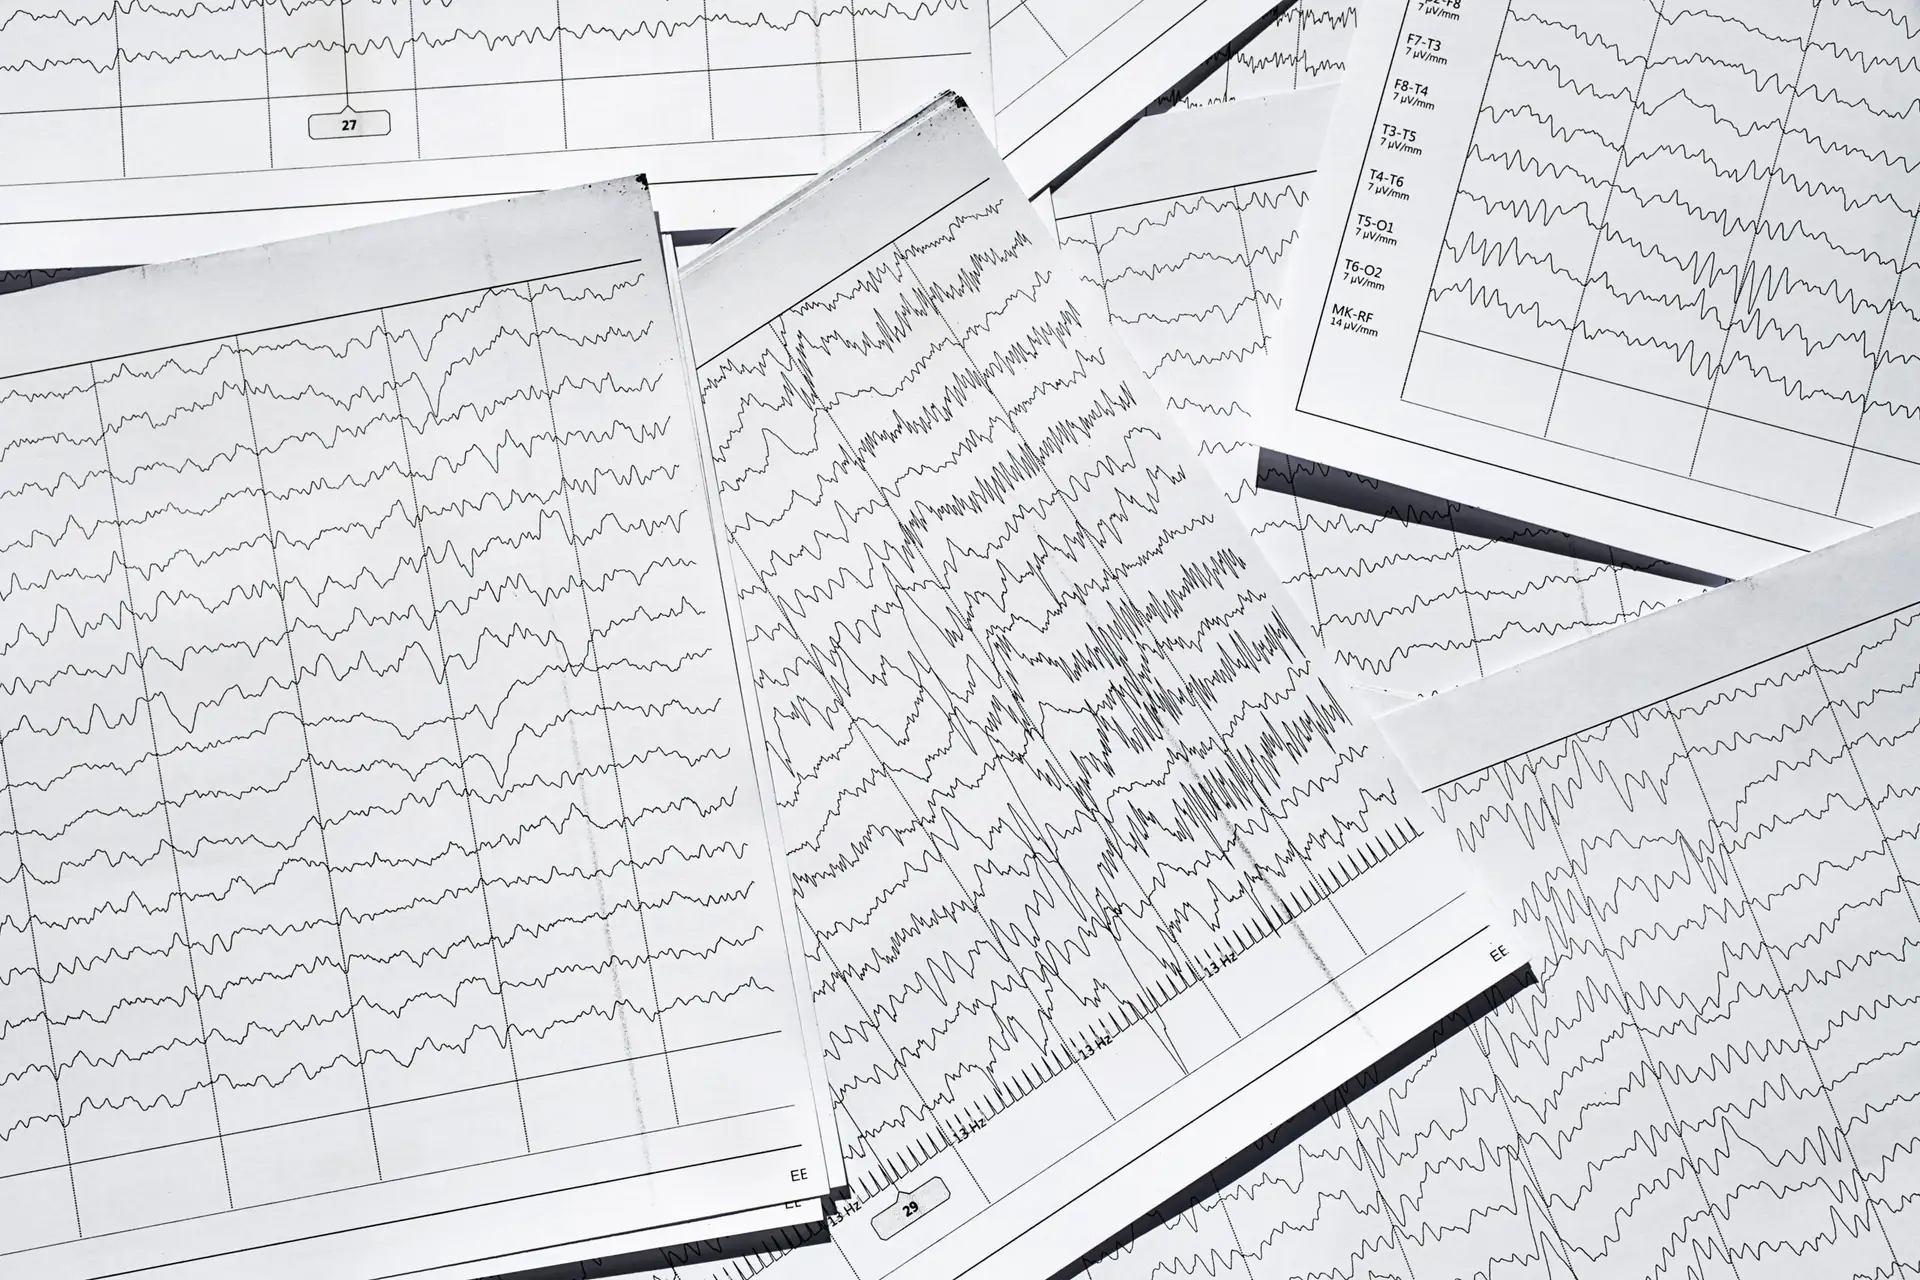 27
7 µV/mm
F7-T3
7 µV/mm
F8-T4
7 µV/mm
T3-T5
7 µV/mm
T4-T6
7 µV/mm
T5-O1
7 µV/mm
T6-O2
7 µV/mm
MK-RF
14 µV/mm
EE
13 Hz
13 Hz
13 Hz
13 Hz
29
EE
EE